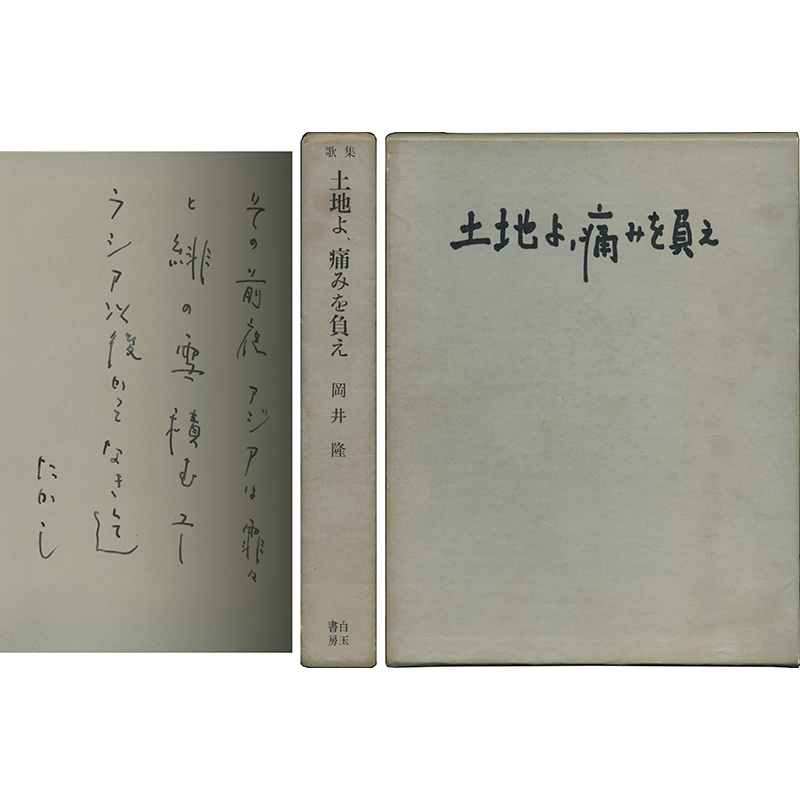 その前夜アジアは霏々
と緋の雪積むユー
ラシア以後かつてなき迄
たかし
歌集
土地よ、痛みを負え
岡井隆
白玉
書房
土地よ、痛みを負え